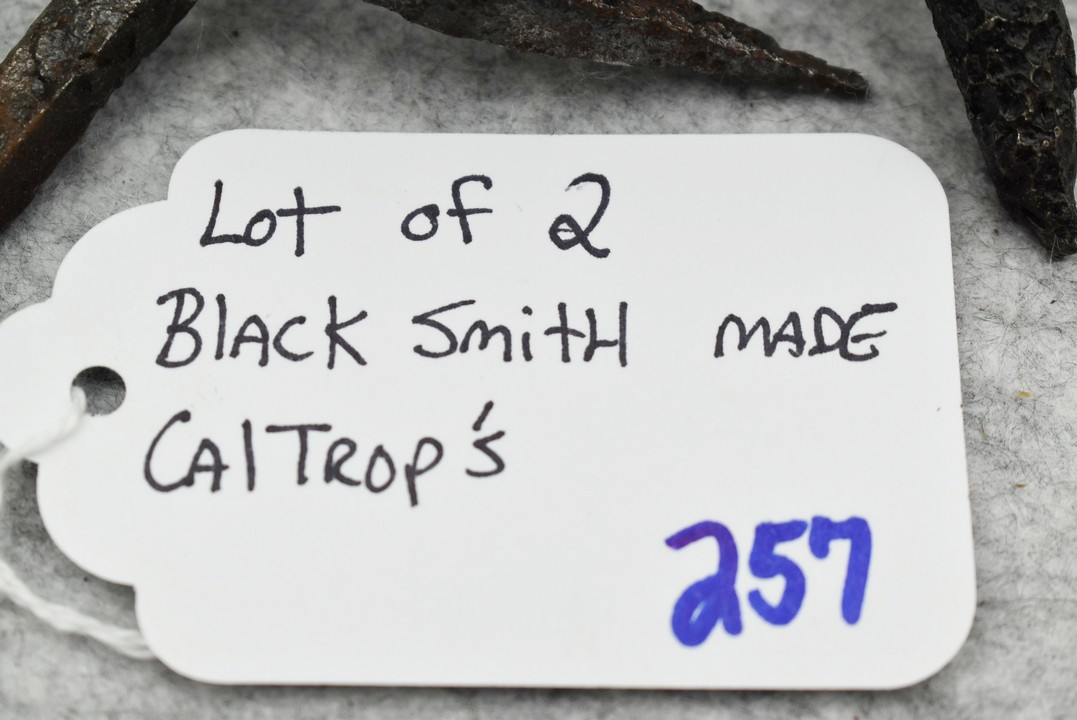 Lot of 2
Black Smith MADE
CalTrop's
257